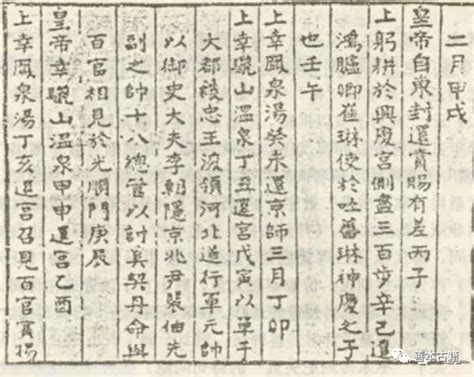 二月甲戌
皇帝自東封還賞賜有差丙子
上躬耕於興慶宮側盡三百步辛巳遣
鴻臚卿崔琳使於吐蕃琳神慶之子
也壬午
上幸鳳泉湯癸未還京師三月丁卯
上幸驪山溫泉丁丑還宮戊寅以單于
大都護忠王浚領河北道行軍元帥
以御史大夫李朝隱京兆尹裴伷先
副之帥十八總管以討奚契丹命與
百官相見於光順門庚辰
皇帝幸驪山溫泉甲申還宮乙酉
上幸鳳泉湯丁亥還宮召見百官賞賜
善本古籍